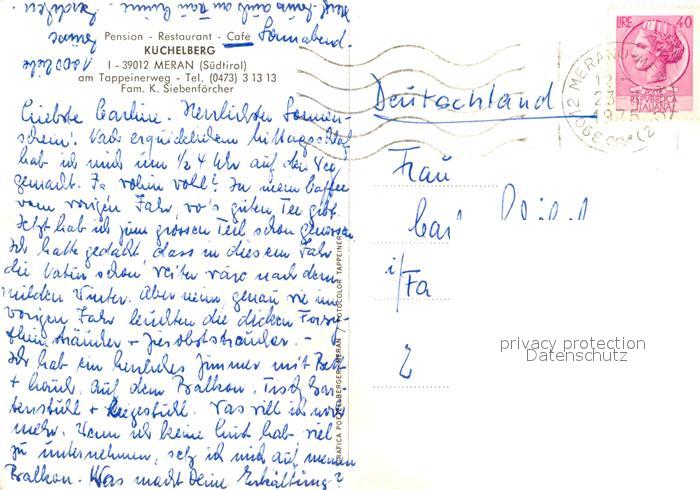 Pension - Restaurant - Café
KUCHELBERG
I - 39012 MERAN (Südtirol)
am Tappeinerweg - Tel. (0473) 3 13 13
Fam. K. Siebenförcher
Sonnabend.
Liebste Carline. Herrlichster Sonnen-
schein! Nach erquicklichem Mittagsschlaf
hab ich mich um 1/2 4 Uhr auf den Weg
gemacht. Ja wohin wohl? In mein Caffee
vom vorigen Jahr, wo's guten Tee gibt.
Jetzt hab ich zum grossen Teil schon genossen
Ich hatte gedacht, dass in diesem Jahr
die Natur schon weiter wäre nach dem
milden Winter. Aber nein genau wie im
vorigen Jahr leuchten die dicken Forsy-
thiensträucher + Zierobststräucher. -
Ich hab ein herrliches Zimmer mit Bad
+ hab auf dem Balkon Tisch Gar-
tenstuhl + Liegestuhl. Was will ich noch
mehr. Wenn ich keine Lust hab, viel
zu unternehmen, setz ich mich auf meinen
Balkon. Was macht Deine Erkältung?
GRAFICA POETZELBERGER - MERAN / FOTOCOLOR TAPPEINER
Deutschland
Frau
i/Fa
LIRE 40
REPVBBLICA
ITALIANA
39012 MERANO
privacy protection
Datenschutz